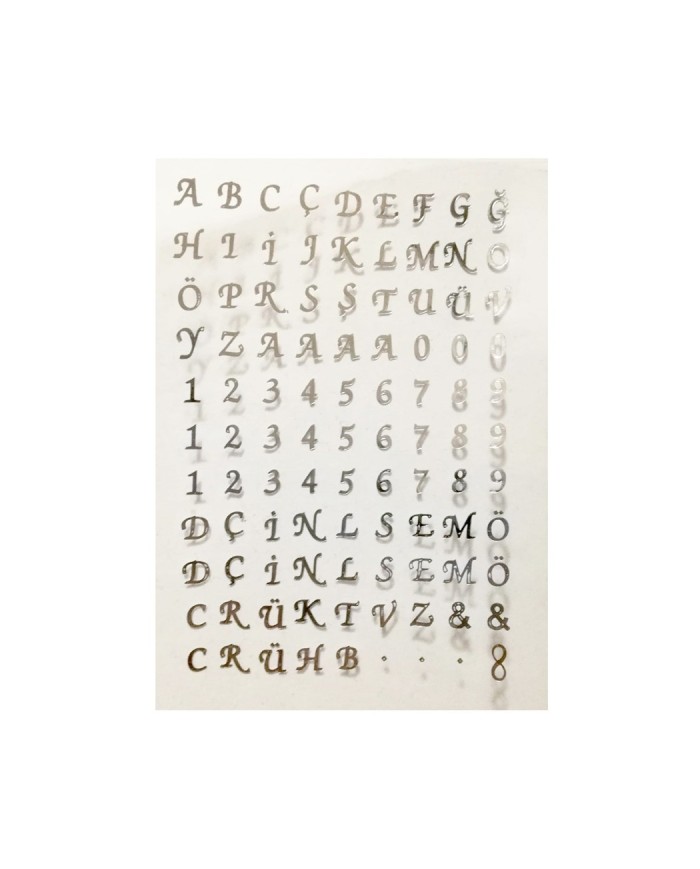 A B C Ç D E F G Ğ
H I İ J K L M N O
Ö P R S Ş T U Ü V
Y Z A A A A 0 0 0
1 2 3 4 5 6 7 8 9
1 2 3 4 5 6 7 8 9
1 2 3 4 5 6 7 8 9
D Ç İ N L S E M Ö
D Ç İ N L S E M Ö
C R Ü K T V Z & &
C R Ü H B . . . 8